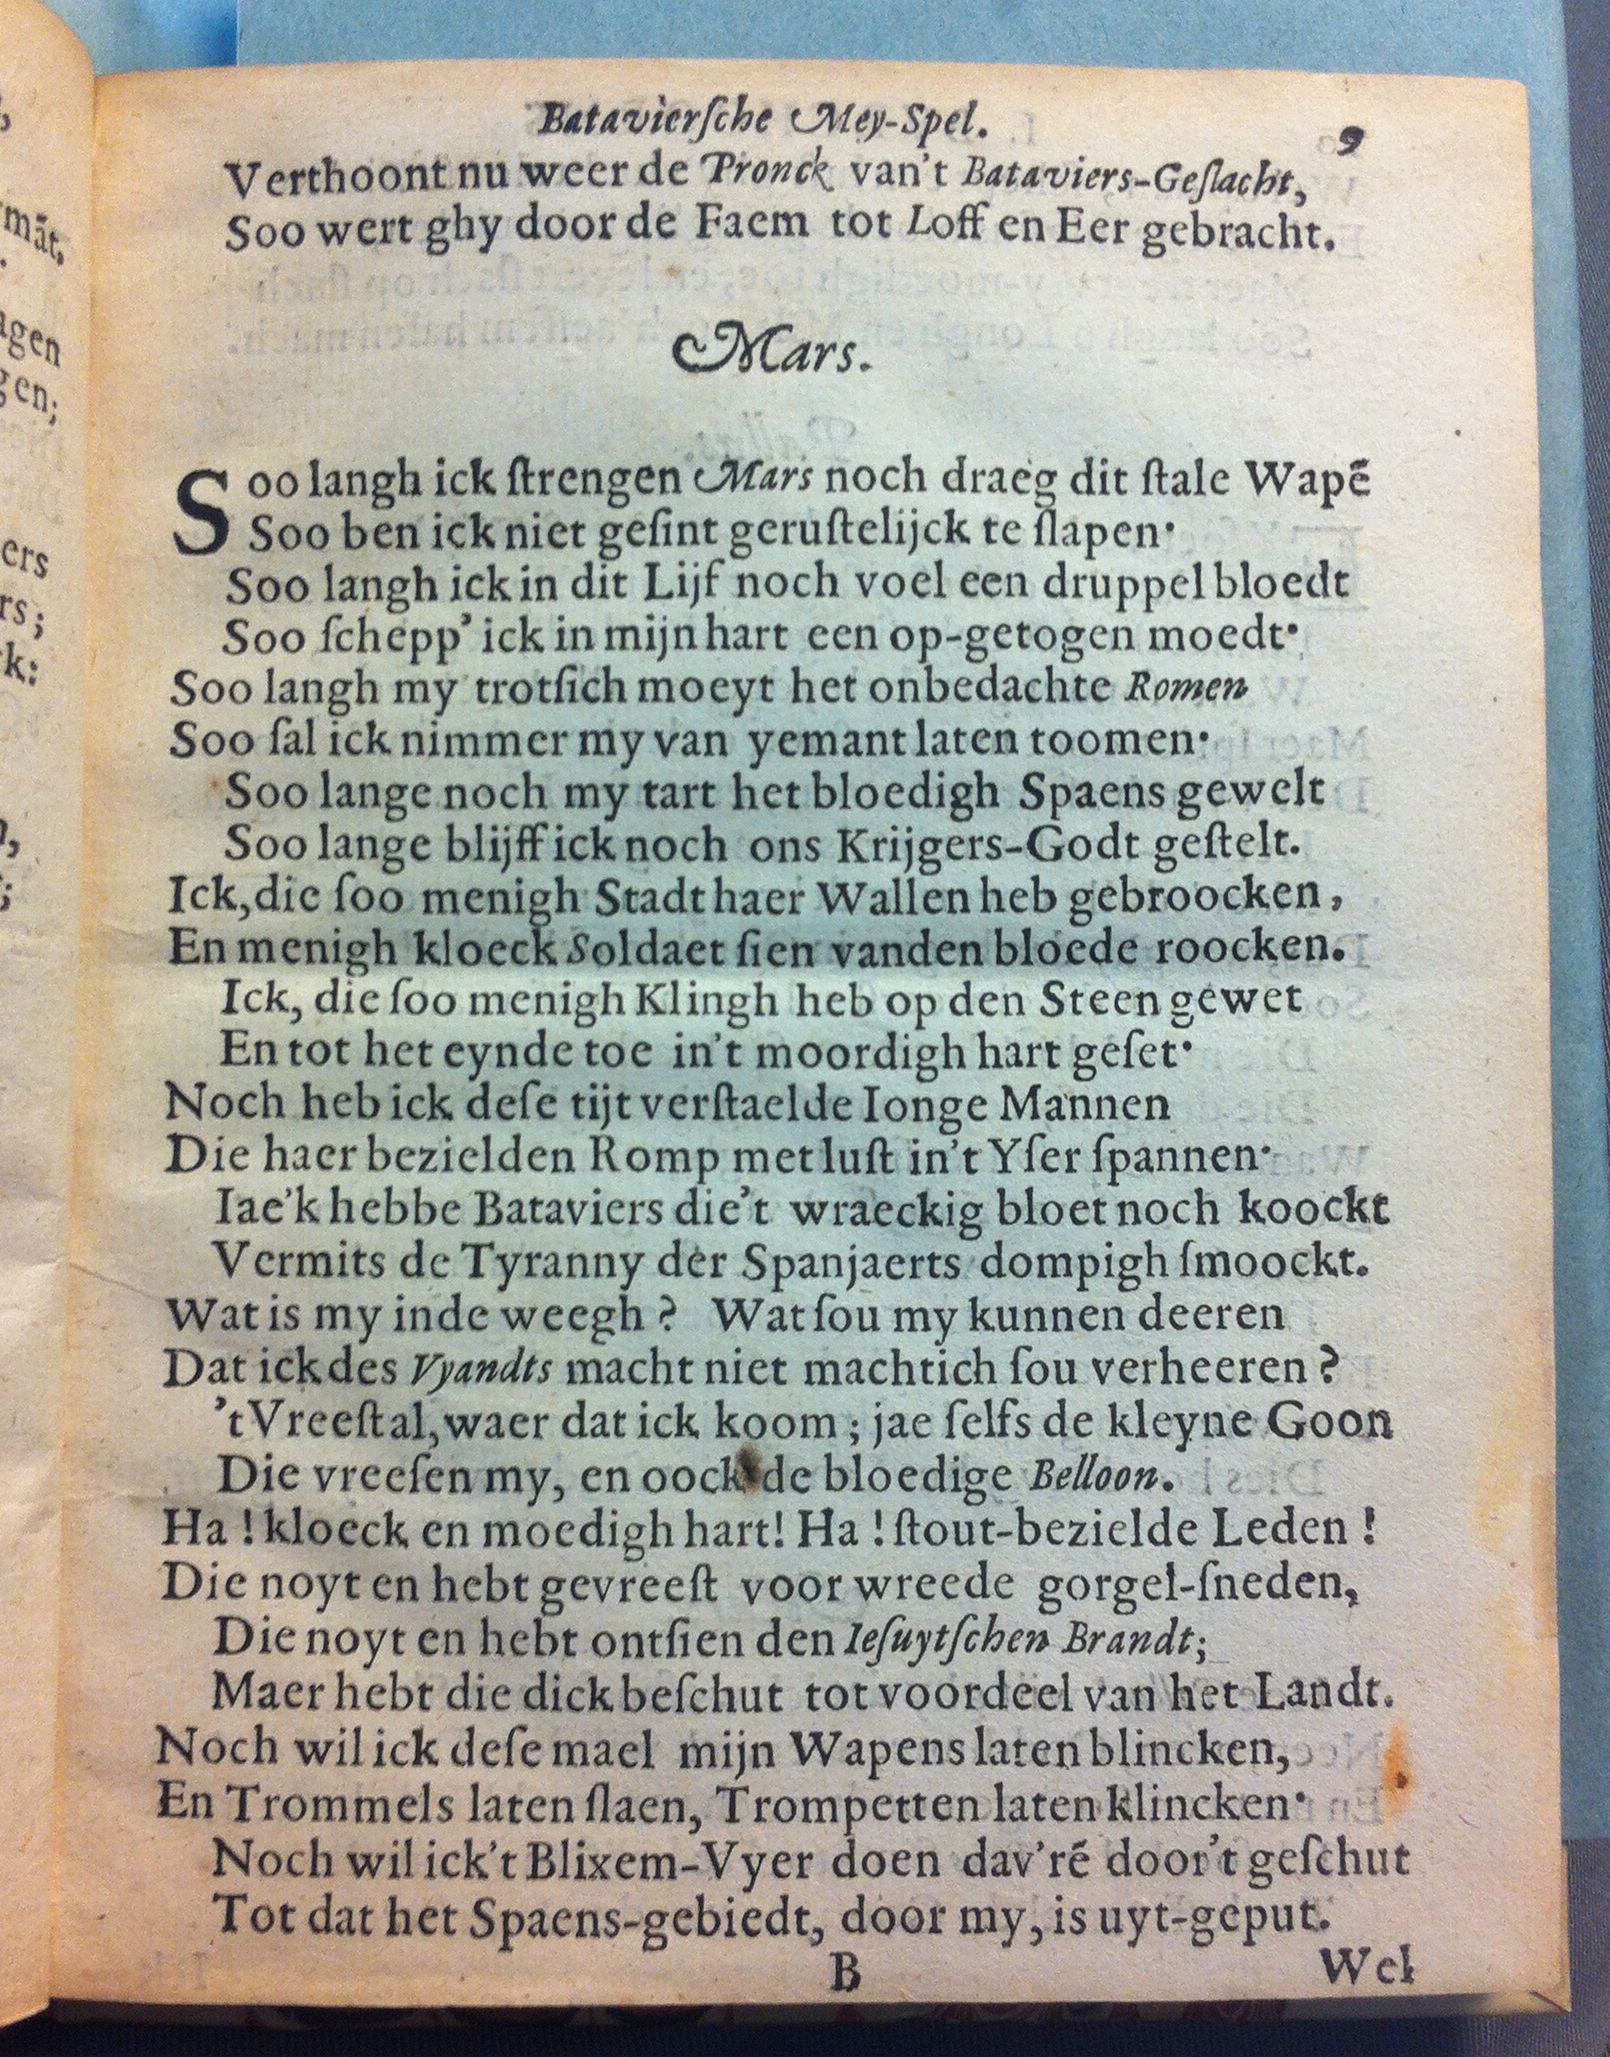 Bataviersche Mey-Spel. 9
Verthoont nu weer de Pronck van't Bataviers-Geſlacht,
Soo wert ghy door de Faem tot Loff en Eer gebracht.
Mars.
Soo langh ick ſtrengen Mars noch draeg dit ſtale Wapẽ
Soo ben ick niet geſint geruſtelijck te ſlapen·
Soo langh ick in dit Lijf noch voel een druppel bloedt
Soo ſchepp' ick in mijn hart een op-getogen moedt·
Soo langh my trotſich moeyt het onbedachte Romen
Soo ſal ick nimmer my van yemant laten toomen·
Soo lange noch my tart het bloedigh Spaens gewelt
Soo lange blijff ick noch ons Krijgers-Godt geſtelt.
Ick, die ſoo menigh Stadt haer Wallen heb gebroocken,
En menigh kloeck Soldaet ſien vanden bloede roocken.
Ick, die ſoo menigh Klingh heb op den Steen gewet
En tot het eynde toe in't moordigh hart geſet·
Noch heb ick deſe tijt verſtaelde Ionge Mannen
Die haer bezielden Romp met luſt in't Yſer ſpannen·
Iae'k hebbe Bataviers die't wraeckig bloet noch koockt
Vermits de Tyranny der Spanjaerts dompigh ſmoockt.
Wat is my inde weegh? Wat ſou my kunnen deeren
Dat ick des Vyandts macht niet machtich ſou verheeren?
't Vreeſt al, waer dat ick koom; jae ſelfs de kleyne Goon
Die vreeſen my, en oock de bloedige Belloon.
Ha! kloeck en moedigh hart! Ha! ſtout-bezielde Leden!
Die noyt en hebt gevreeſt voor wreede gorgel-ſneden,
Die noyt en hebt ontſien den Ieſuytſchen Brandt;
Maer hebt die dick beſchut tot voordeel van het Landt.
Noch wil ick deſe mael mijn Wapens laten blincken,
En Trommels laten ſlaen, Trompetten laten klincken·
Noch wil ick't Blixem-Vyer doen dav'rẽ door't geſchut
Tot dat het Spaens-gebiedt, door my, is uyt-geput.
B Wel